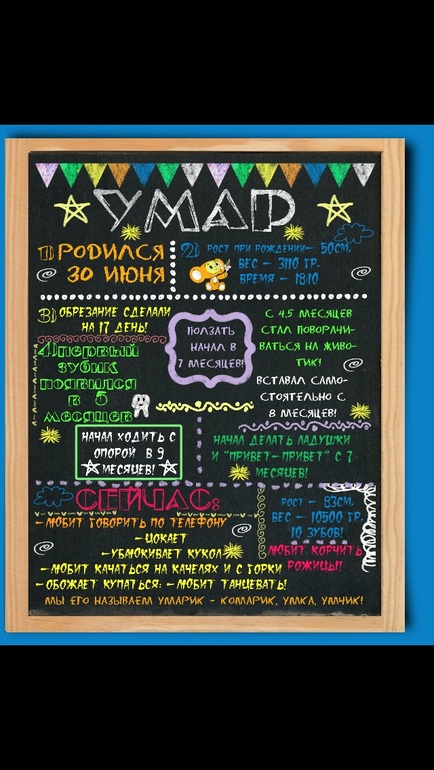 УМАР
1) РОДИЛСЯ
30 ИЮНЯ
2) РОСТ ПРИ РОЖДЕНИИ- 50СМ.
ВЕС - 3110 ГР.
ВРЕМЯ - 18:10
3) ОБРЕЗАНИЕ СДЕЛАЛИ
НА 17 ДЕНЬ!
4)ПЕРВЫЙ
ЗУБИК
ПОЯВИЛСЯ
В 5
МЕСЯЦЕВ
ПОЛЗАТЬ
НАЧАЛ В
7 МЕСЯЦЕВ!
С 4,5 МЕСЯЦЕВ
СТАЛ ПОВОРАЧИ-
ВАТЬСЯ НА ЖИВО-
ТИК!
ВСТАВАЛ САМО-
СТОЯТЕЛЬНО С
8 МЕСЯЦЕВ!
НАЧАЛ ХОДИТЬ С
ОПОРОЙ В 9
МЕСЯЦЕВ!
НАЧАЛ ДЕЛАТЬ ЛАДУШКИ
И "ПРИВЕТ-ПРИВЕТ" С 7
МЕСЯЦЕВ!
СЕЙЧАС:
-ЛЮБИТ ГОВОРИТЬ ПО ТЕЛЕФОНУ
-ЦОКАЕТ
-УБАЮКИВАЕТ КУКОЛ
-ЛЮБИТ КАЧАТЬСЯ НА КАЧЕЛЯХ И С ГОРКИ
-ОБОЖАЕТ КУПАТЬСЯ: -ЛЮБИТ ТАНЦЕВАТЬ!
РОСТ - 83СМ.
ВЕС - 10500 ГР.
10 ЗУБОВ!
ЛЮБИТ КОРЧИТЬ
РОЖИЦЫ!!
МЫ ЕГО НАЗЫВАЕМ УМАРИК - КОМАРИК, УМКА, УМЧИК!